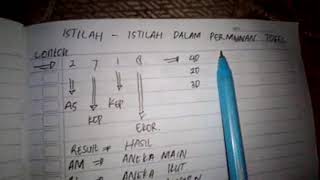 ISTILAH - ISTILAH DALAM PERMAINAN TOGEL
CONTOH
⇒ 2 7 1 8 ⇒ 4D
2D
3D
AS KOP KEP EKOR.
RESULT ⇒ HASIL
AM ⇒ ANGKA MAIN
ANGKA IKUT